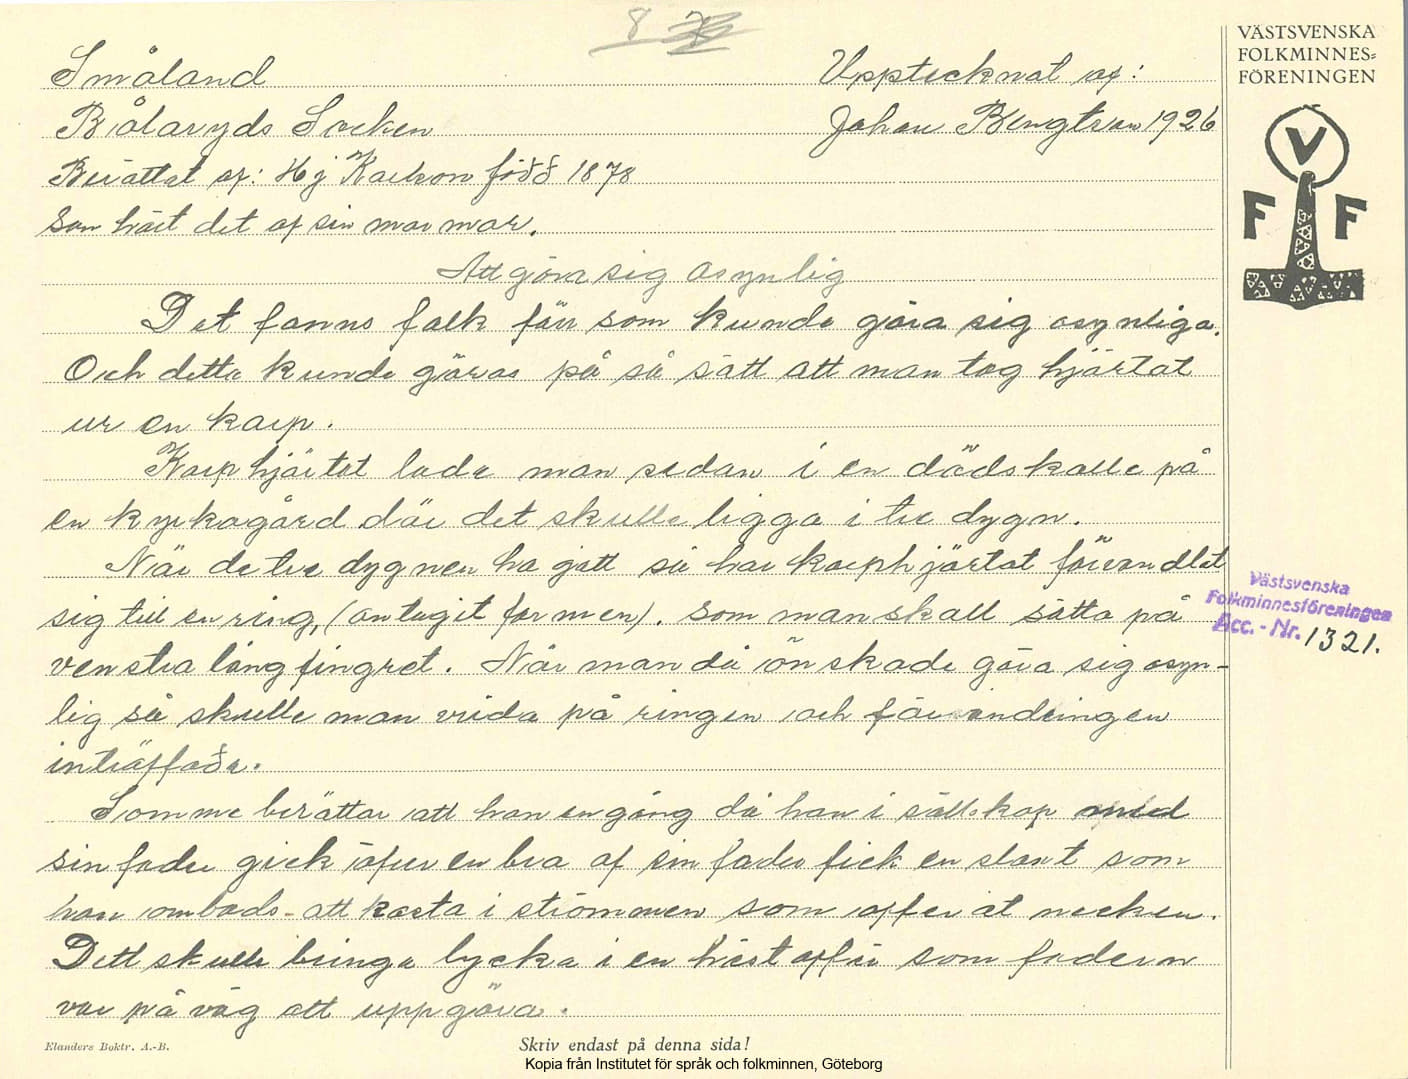 8
VÄSTSVENSKA
FOLKMINNES=
FÖRENINGEN
V
F F
Småland
Upptecknat af:
Bålaryds Socken
Johan Bengtson 1926
Berättat af: Hj Karlson född 1878
som hört det af sin mormor.
Att göra sig osynlig
Det fanns folk förr som kunde göra sig osynliga.
Och detta kunde göras på så sätt att man tog hjärtat
ur en korp.
Korphjärtat lade man sedan i en dödskalle på
en kyrkogård där det skulle ligga i tre dygn.
När de tre dygnen ha gått så har korphjärtat förvandlat
sig till en ring, (antagit formen). som man skall sätta på
venstra långfingret. När man då önskade göra sig osyn-
lig så skulle man vrida på ringen och förvandlingen
inträffade.
Somme berättar att han en gång då han i sällskap med
sin fader gick öfver en bro af sin fader fick en slant som
han ombads att kasta i strömmen som offer åt necken.
Dett skulle bringa lycka i en hästaffär som fadern
var på väg att uppgöra.
Västsvenska
Folkminnesföreningen
Acc.-Nr. 1321.
Elanders Boktr. A.-B.
Skriv endast på denna sida!
Kopia från Institutet för språk och folkminnen, Göteborg